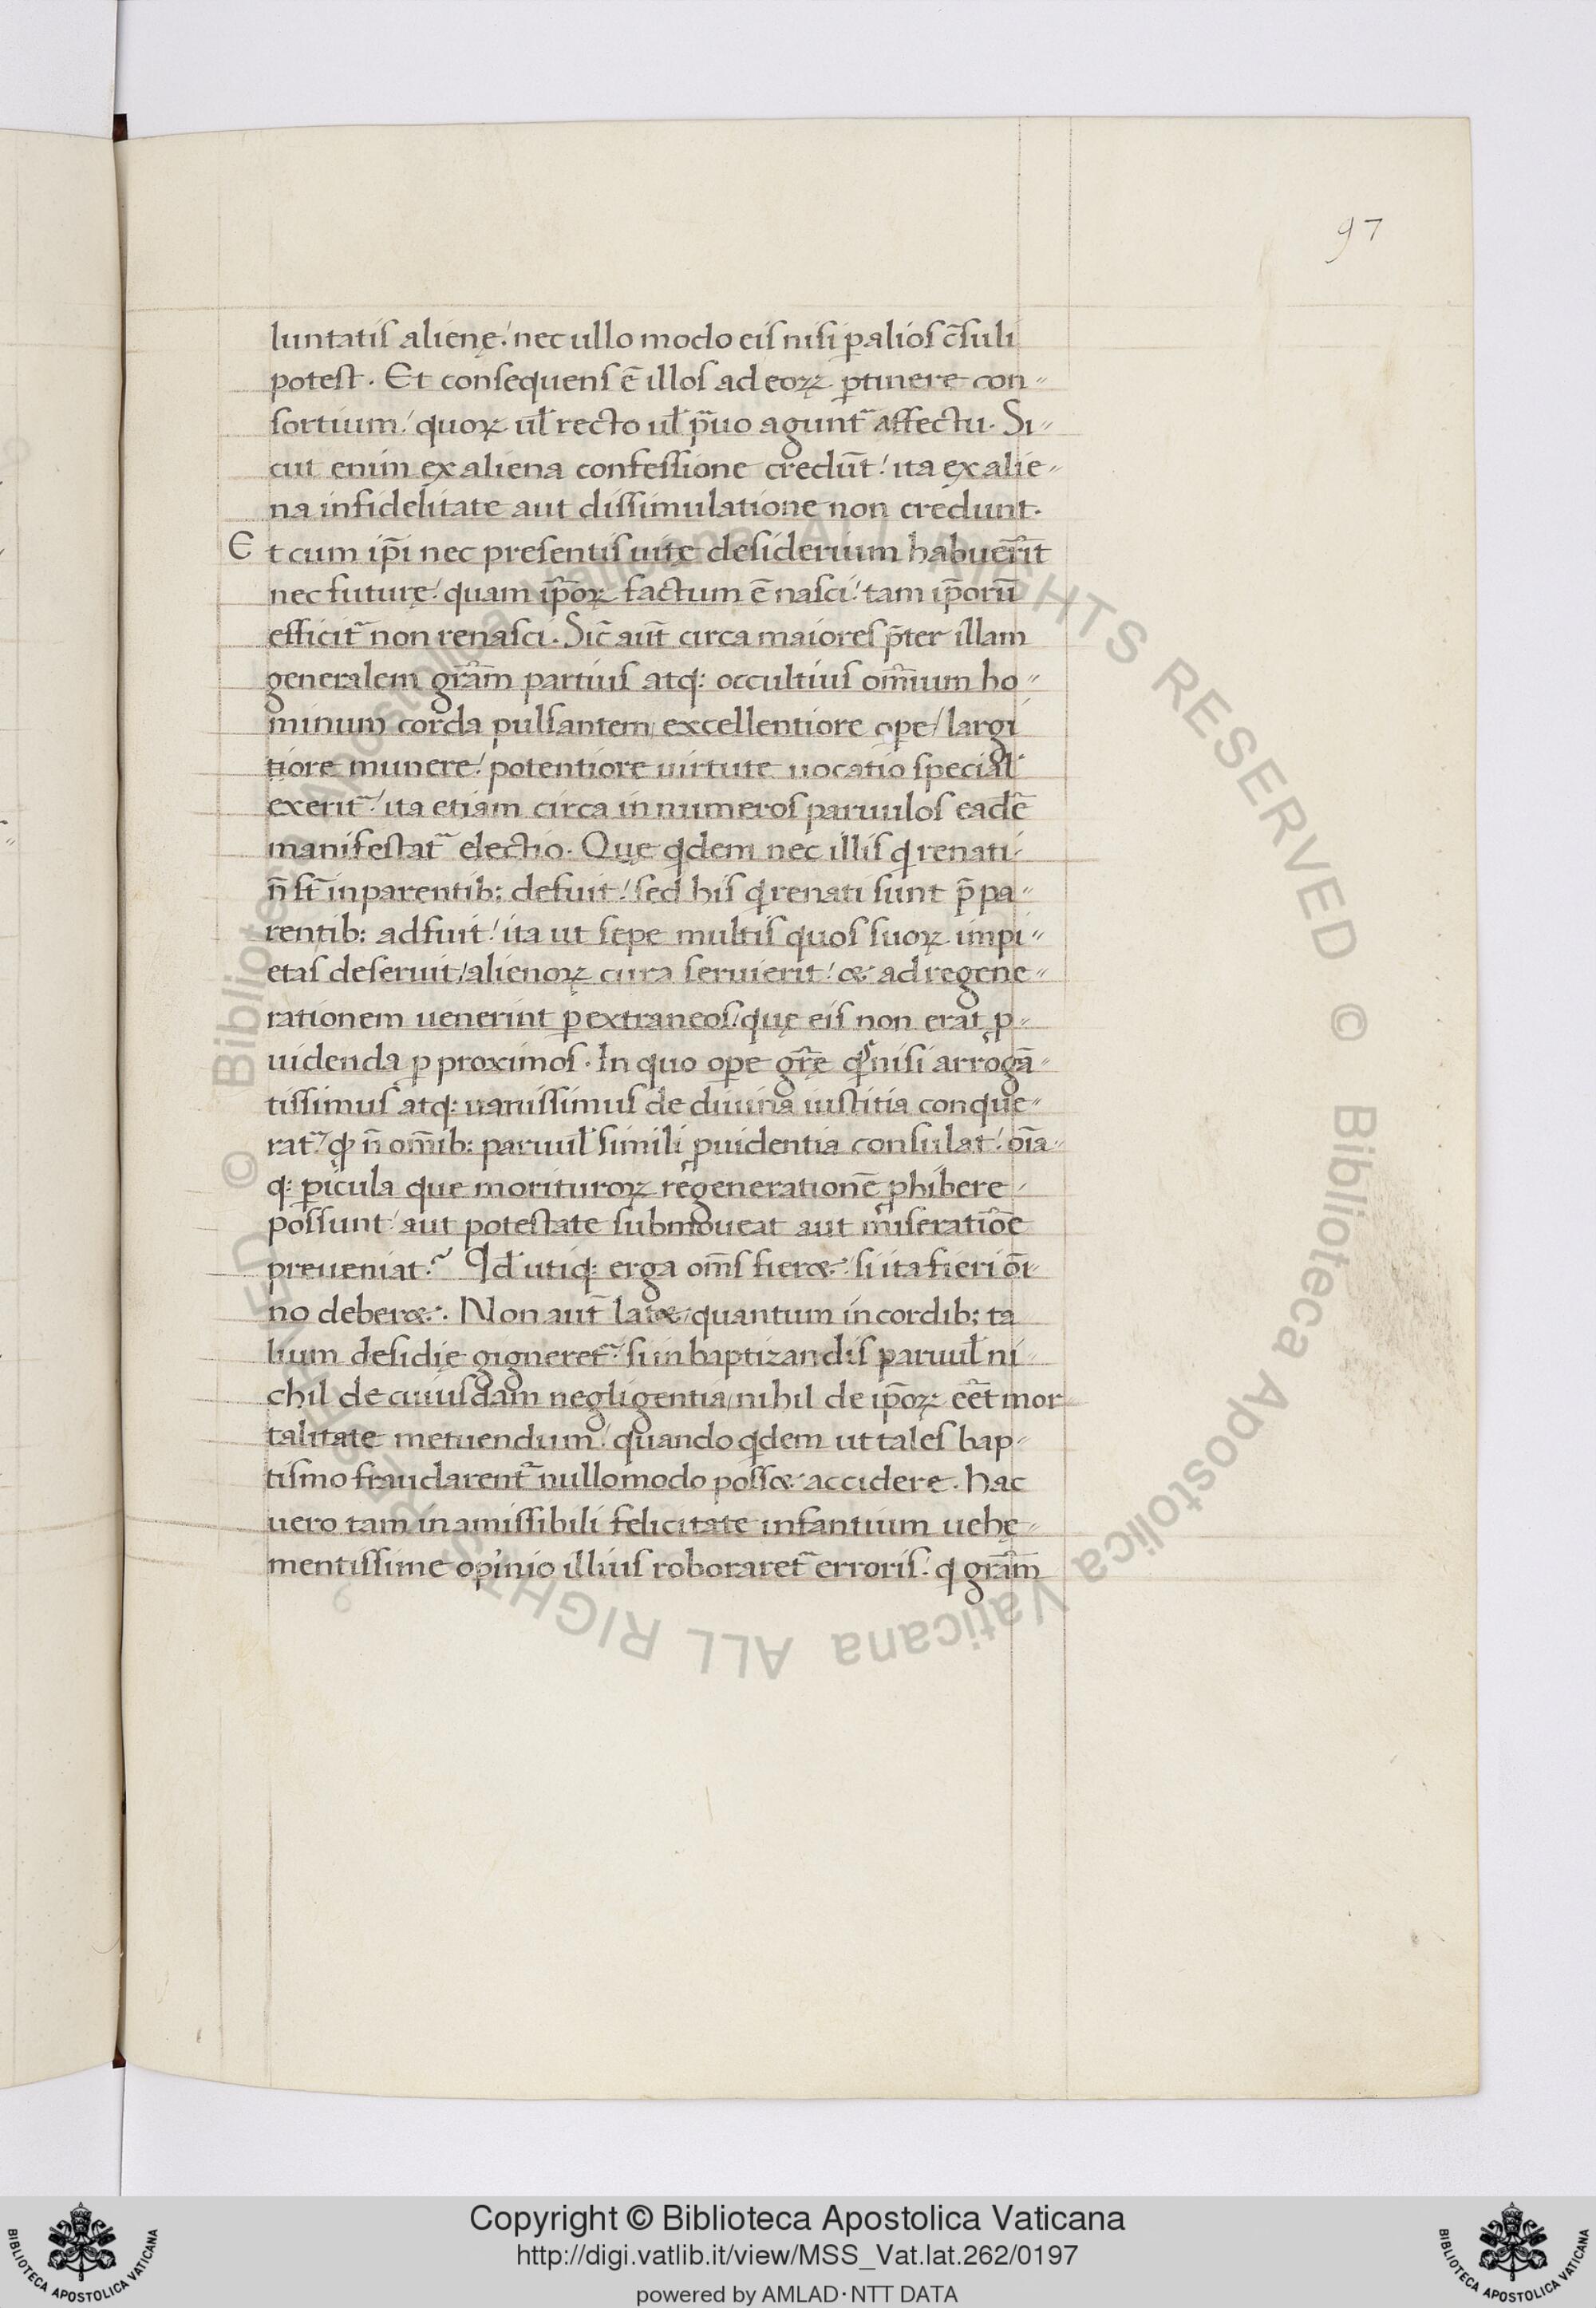 97
luntatis alienę. nec ullo modo eis nisi ꝑ alios c̄suli
potest. Et consequens ē illos ad eoꝝ ꝑtinere con-
sortium, quoꝝ ul̄ recto ul̄ p̄uo agunt̄ affectu. Si-
cut enim ex aliena confessione credūt, ita ex alie-
na infidelitate aut dissimulatione non credunt.
Et cum ip̄i nec presentis uitę desiderium habuer̄īt
nec futurę, quam ip̄oꝝ factum ē nasci, tam ip̄orū
efficit̄ non renasci. Sic̄ aut̄ circa maiores p̄ter illam
generalem gr̄am partius atq: occultius om̄ium ho-
minum corda pulsantem, excellentiore ope, largi
tiore munere, potentiore uirtute uocatio special̄
exerit̄, ita etiam circa innumeros paruulos eadē
manifestat̄ electio. Que qdem nec illis q renati
n̄ st̄ in parentib; defuit, sed his q renati sunt p̄ pa-
rentib: adfuit, ita ut sepe multis quos suoꝝ impi-
etas deseruit, alienoꝝ cura seruierit, & ad regene-
rationem uenerint ꝑ extraneos, quę eis non erat ꝓ-
uidenda ꝑ proximos. In quo ope gr̄ę qs nisi arrogā-
tissimus atq: uanissimus de diuina iustitia conque-
rat̄, ꝙ n̄ om̄ib: paruul̄ simili ꝓuidentia consulat, oīa-
q: ꝑicula que morituroꝝ regenerationē ꝓhibere
possunt, aut potestate submoueat aut miseratiōe
preueniat? Qd̄ utiq: erga om̄s fier&, si ita fieri ōi-
no deber&. Non aut̄ lat&, quantum in cordib; ta
lium desidię gigneret̄, si in baptizandis paruul̄ ni-
chil de cuiusdam negligentia, nihil de ip̄oꝝ eēt mor
talitate metuendum, quando qdem ut tales bap-
tismo fraudarent̄ nullomodo poss& accidere. Hac
uero tam inamissibili felicitate infantium uehę-
mentissime opinio illius roboraret̄ erroris, q gr̄am
Copyright © Biblioteca Apostolica Vaticana
http://digi.vatlib.it/view/MSS_Vat.lat.262/0197
powered by AMLAD·NTT DATA
BIBLIOTECA APOSTOLICA VATICANA
BIBLIOTECA APOSTOLICA VATICANA
© Biblioteca Apostolica Vaticana ALL RIGHTS RESERVED © Biblioteca Apostolica Vaticana ALL RIGHTS RESERVED